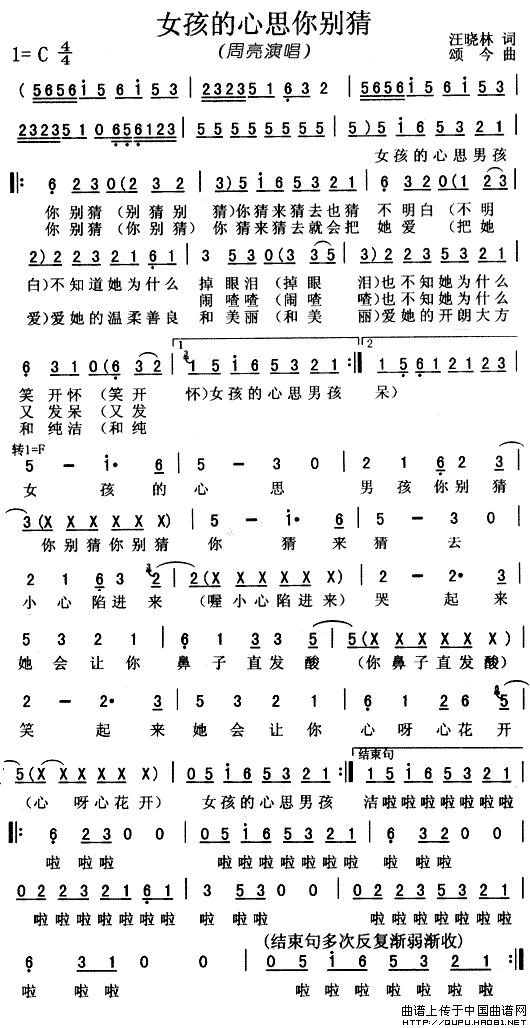 女孩的心思你别猜
1=C 4/4 (周亮演唱) 汪晓林 词
颂今 曲
(5656i5 6i53 | 5656i5 6i53 | 23235165 1632 |
2323510656123 | 5555 5555 | 5)5i65321 |
女孩的心思男孩
6 230(2 32 | 3)5i65321 | 6 220(1 23 |
你别猜 (别猜别 猜)你猜来猜去也猜 不明白 (不明
你别猜 (你别猜) 你猜来猜去就会把 她爱 (把她
2)2232161 | 3 530(3 35 | 5)2235321 |
白)不知道她为什么 掉眼泪 (掉眼 泪)也不知她为什么
闹喳喳 (闹喳 喳)也不知她为什么
爱)爱她的温柔善良 和美丽 (和美 丽)爱她的开朗大方
6 310(6 32 | 1)5i65321 :| 15612123 |
笑开怀 (笑开 怀)女孩的心思男孩 呆)
又发呆 (又发
和纯洁 (和纯
转1=F
5 - i· 6 | 5 - 3 0 | 2 1 6 2 3 |
女 孩 的 心 思 男 孩 你别 猜
3(X X X X X X) | 5 - i· 6 | 5 - 3 0 |
你别猜你别猜 你 猜 来 猜 去
2 1 6 3 2 | 2(X X X X X) | 2 - 2· 3 |
小 心 陷进 来 (喔小心陷进来) 哭 起 来
5 3 2 1 | 6 1 3 3 5 | 5(X X X X X) |
她 会 让 你 鼻 子 直发 酸 (你鼻子直发酸)
2 - 2· 3 | 5 3 2 1 | 6 1 2 6 5 |
笑 起 来 她 会 让 你 心 呀 心花 开
5(X X X X X) | 05i65321 :| 结束句 15i65321 |
(心 呀心花 开) 女孩的心思男孩 洁啦啦啦啦啦啦啦
|: 6 2300 | 05i65321 | 6 3200 |
啦 啦啦 啦啦啦啦啦啦啦 啦 啦啦
02232161 | 3 5300 | 02235321 |
啦啦啦啦啦啦啦 啦 啦啦 啦啦啦啦啦啦啦
(结束句多次反复渐弱渐收)
6 310 0 | 05i65321 :|
啦 啦 啦 啦啦啦啦啦啦啦
曲谱上传于中国曲谱网
HTTP://QUPU.HAO81.NET